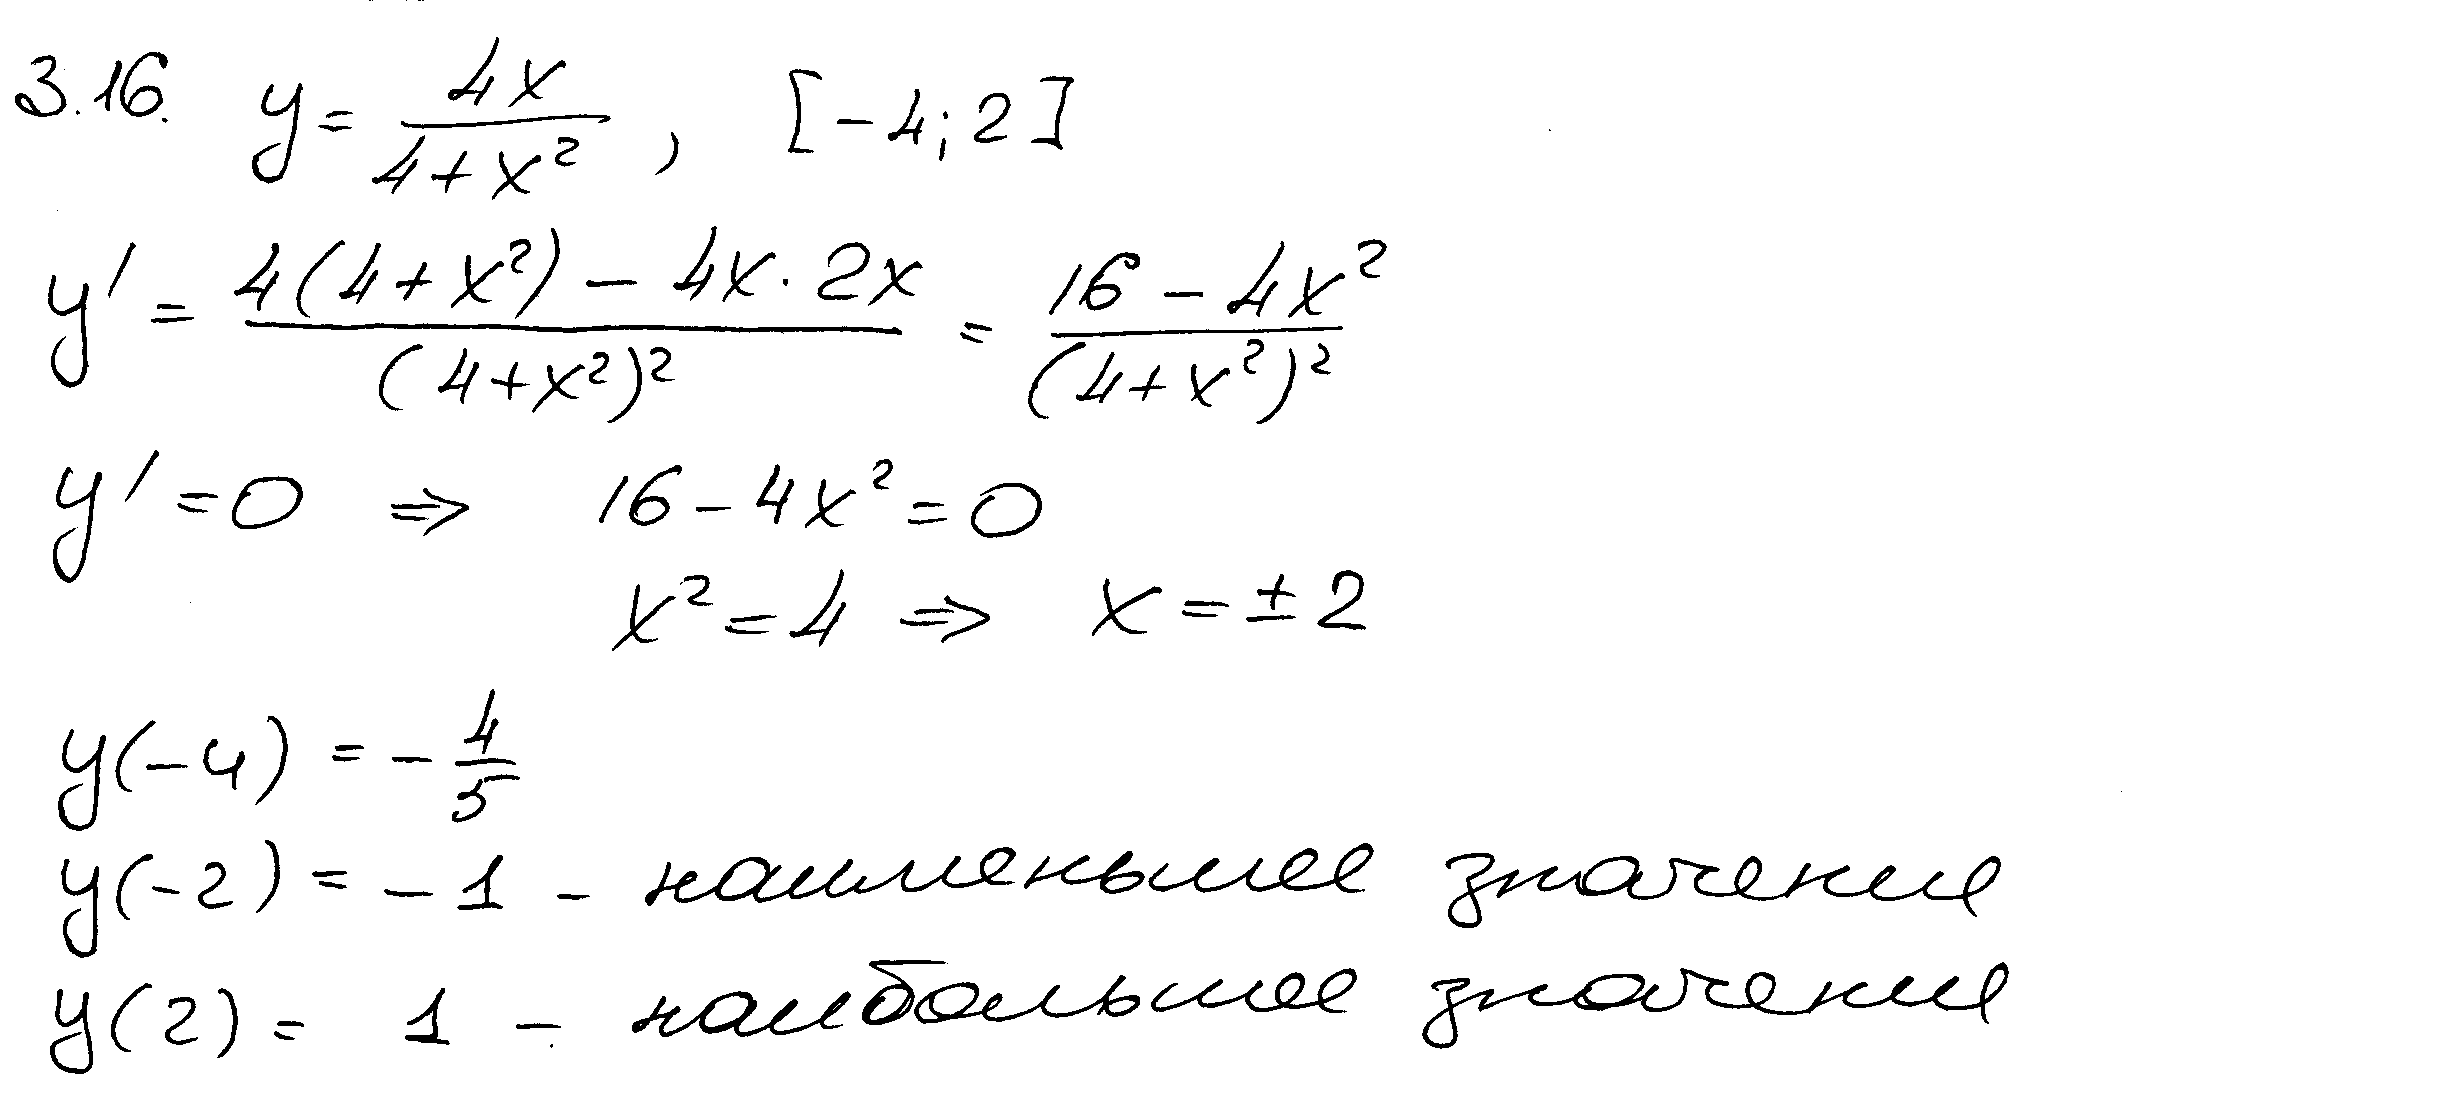 3.16. y = 4x / (4 + x²), [-4; 2]
y' = (4(4 + x²) - 4x · 2x) / (4 + x²)² = (16 - 4x²) / (4 + x²)²
y' = 0 ⇒ 16 - 4x² = 0
x² = 4 ⇒ x = ± 2
y(-4) = - 4/5
y(-2) = - 1 - наименьшее значение
y(2) = 1 - наибольшее значение